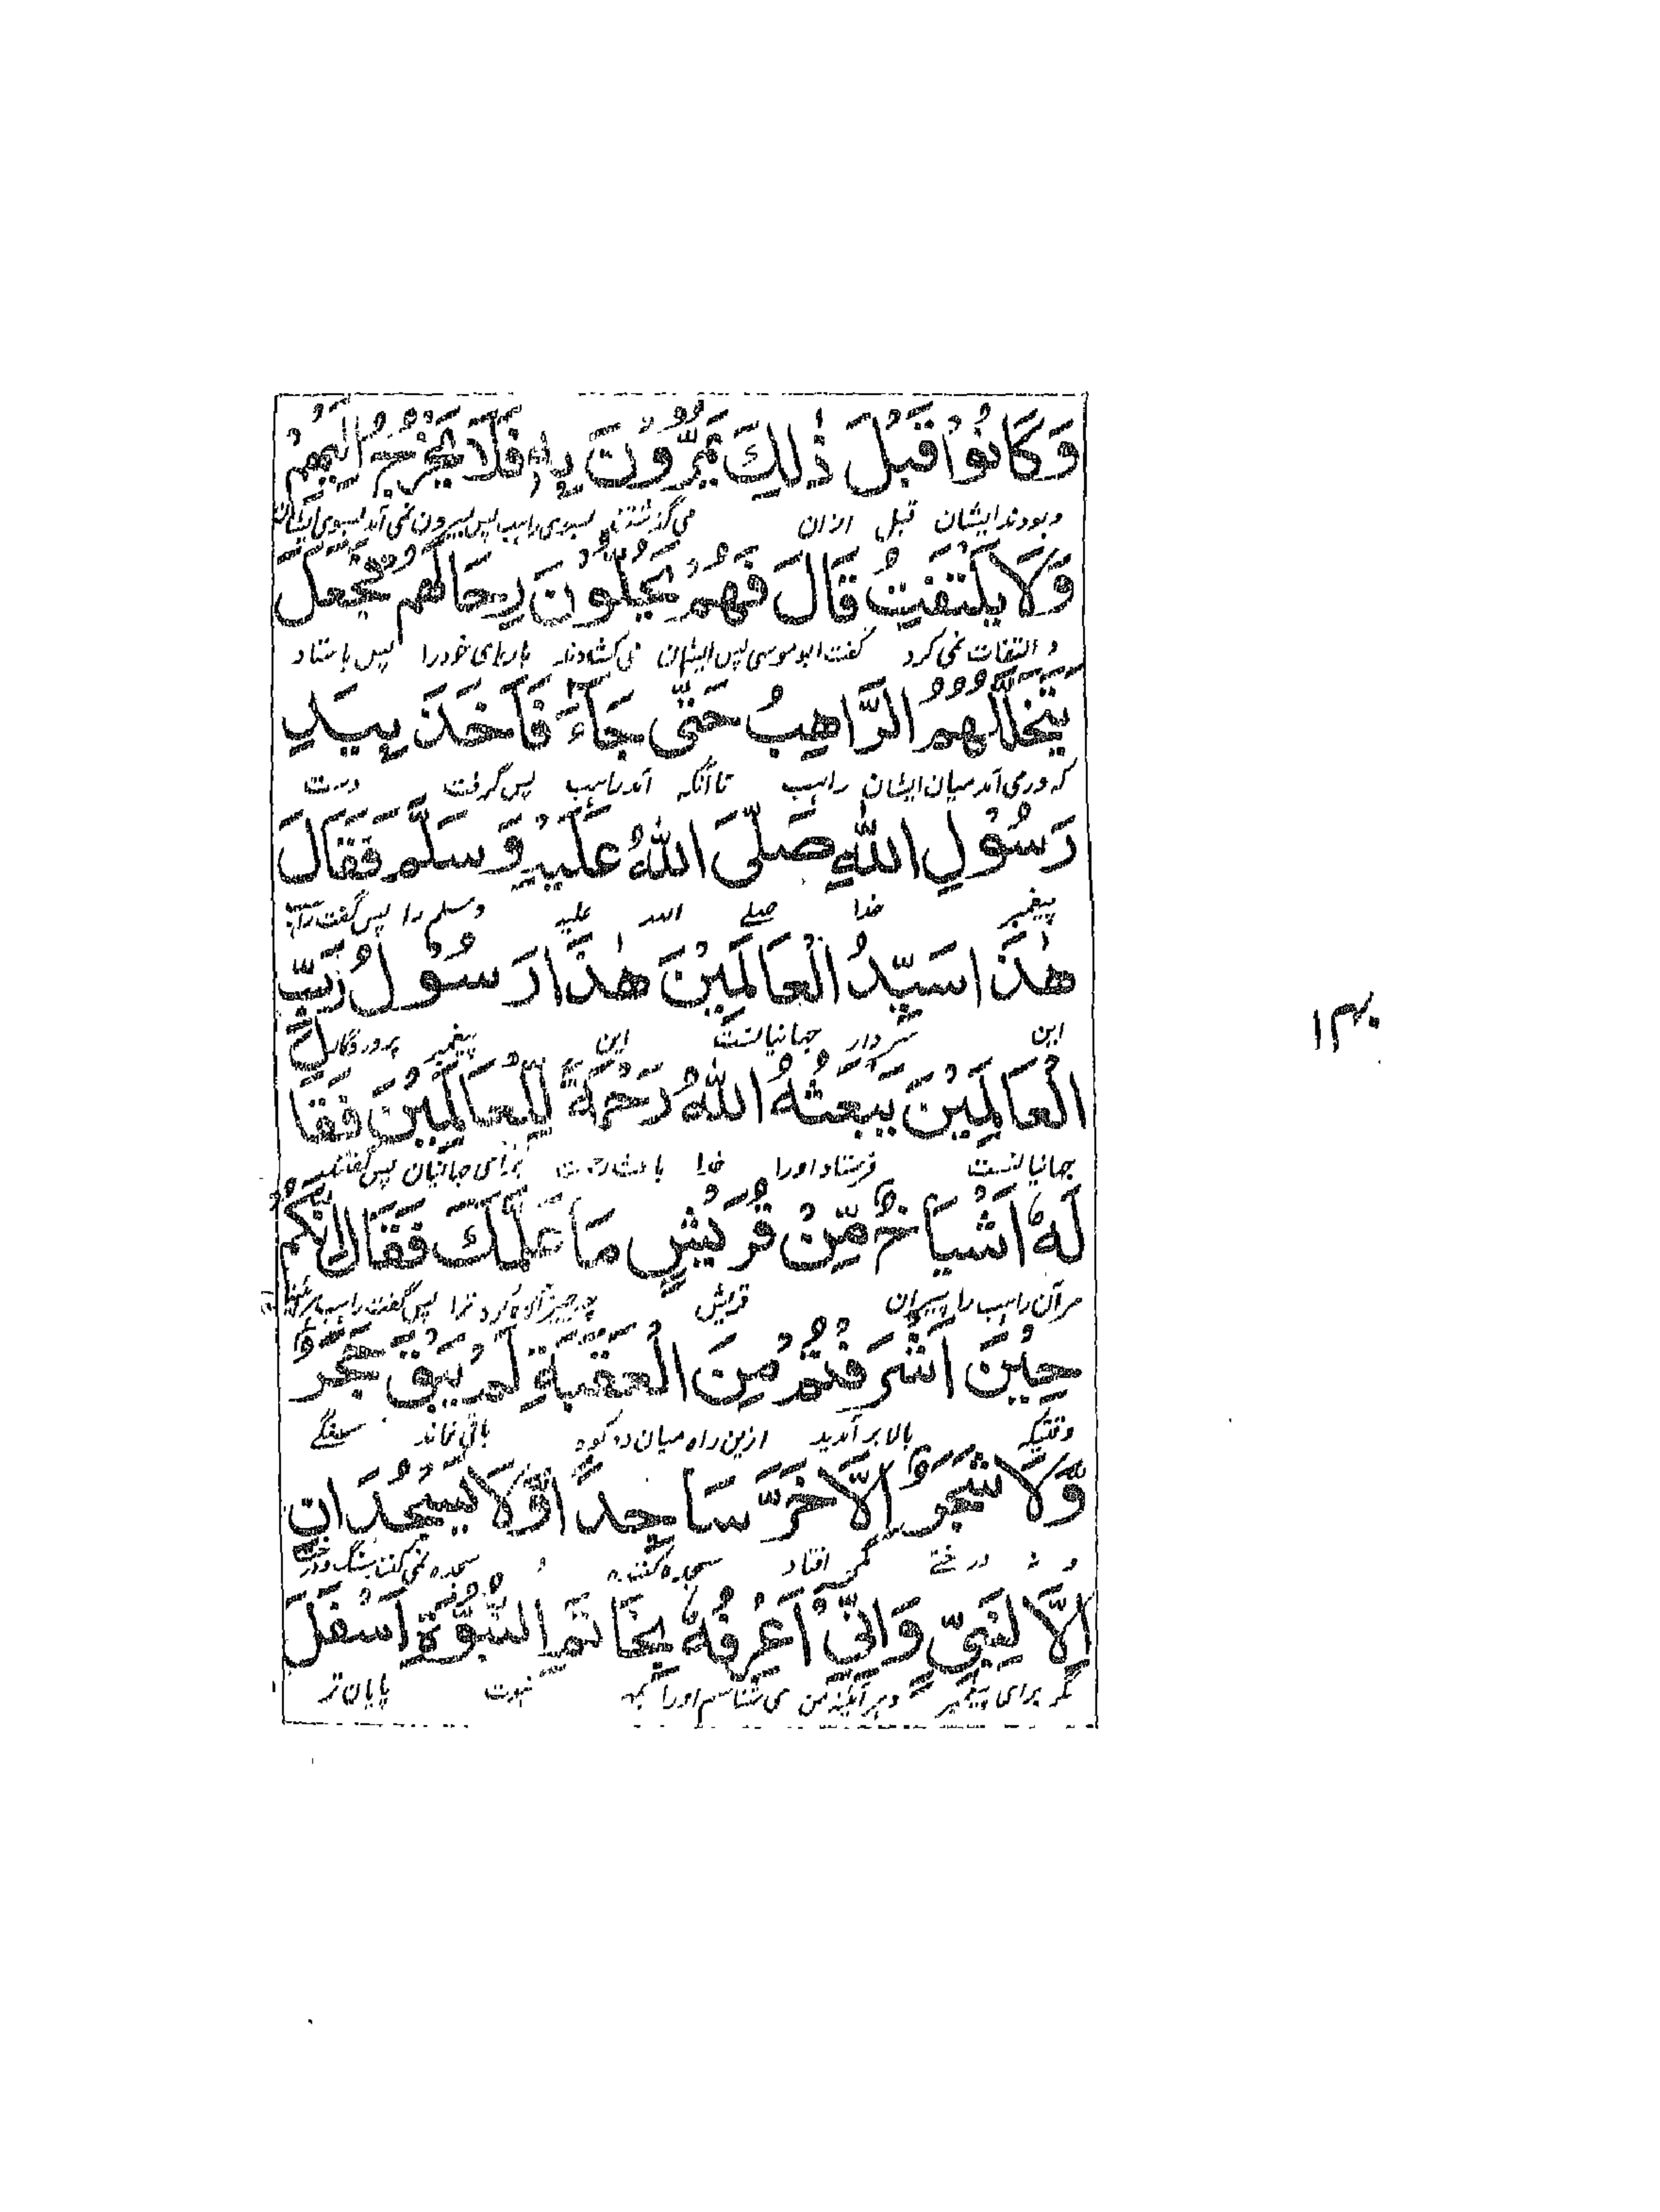 وَكَانُوْا قَبْلَ ذٰلِكَ يَمُرُّوْنَ بِهٖ فَلَا يَخْرُجُ اِلَيْهِمْ
وبودند ایشان قبل ازان می گذشتند بسوی راہب پس بیرون نمی آمد بسوی ایشان
وَلَا يَلْتَفِتُ قَالَ فَهُمْ يَحُلُّوْنَ رِحَالَهُمْ فَجَعَلَ
و التفات نمی کرد گفت ابو موسی پس ایشان می کشادند بارہای خودرا پس باستاد
يَتَخَلَّلُهُمُ الرَّاهِبُ حَتّٰى جَآءَ فَاَخَذَ بِيَدِ
کہ درمی آمد میان ایشان راہب تا آنکہ آمد راہب پس گرفت دست
رَسُوْلِ اللّٰهِ صَلَّى اللّٰهُ عَلَيْهِ وَسَلَّمَ فَقَالَ
پیغمبر خدا صلے اللہ علیہ وسلم را پس گفت
هٰذَا سَيِّدُ الْعَالَمِيْنَ هٰذَا رَسُوْلُ رَبِّ
این سردار جہانیانست این پیغمبر پروردگار
الْعَالَمِيْنَ يَبْعَثُهُ اللّٰهُ رَحْمَةً لِّلْعَالَمِيْنَ فَقَالَ
جہانیانست فرستاد اورا خدا باعث رحمت برای جہانیان پس گفتند
لَهٗ اَشْيَاخٌ مِّنْ قُرَيْشٍ مَا عَلَّمَكَ فَقَالَ اِنَّكُمْ
مرآن راہب را پیران قریش چہ چیز آگاہ کرد ترا پس گفت راہب
حِيْنَ اَشْرَفْتُمْ مِنَ الْعَقَبَةِ لَمْ يَبْقَ حَجَرٌ
وقتیکہ بالا بر آمدید ازین راہ میان دو کوہ باقی نماند سنگے
وَّلَا شَجَرٌ اِلَّا خَرَّ سَاجِدًا وَّلَا يَسْجُدَانِ
و نہ درختے مگر افتاد سجدہ کنندہ و سجدہ نمی کنند سنگ ودرخت
اِلَّا لِنَبِيٍّ وَاِنِّيْ اَعْرِفُهٗ بِخَاتَمِ النُّبُوَّةِ اَسْفَلَ
مگر برای پیغمبر وہر آئینہ من می شناسم اورا بمہر نبوت پایان تر
۱۴۰